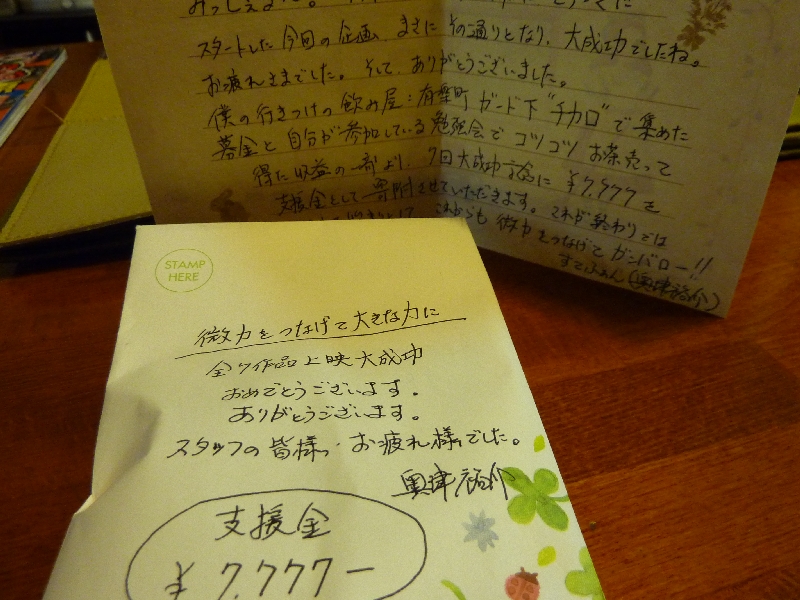 スタートした今回の企画、まさにその通りとなり、大成功でしたね。
お疲れさまでした。そして、ありがとうございました。
僕の行きつけの飲み屋:有楽町ガード下"チカロ"で集めた
募金と自分が参加している勉強会でコツコツお茶売って
得た収益の一部より、7回大成功記念に¥7,777を
支援金として寄附させていただきます。これが終わりでは
これからも微力をつなげてガンバロー!!
(奥津裕介)
STAMP
HERE
微力をつなげて大きな力に
全7作品上映大成功
おめでとうございます。
ありがとうございます。
スタッフの皆様、お疲れ様でした。
奥津裕介
支援金
¥7,777-